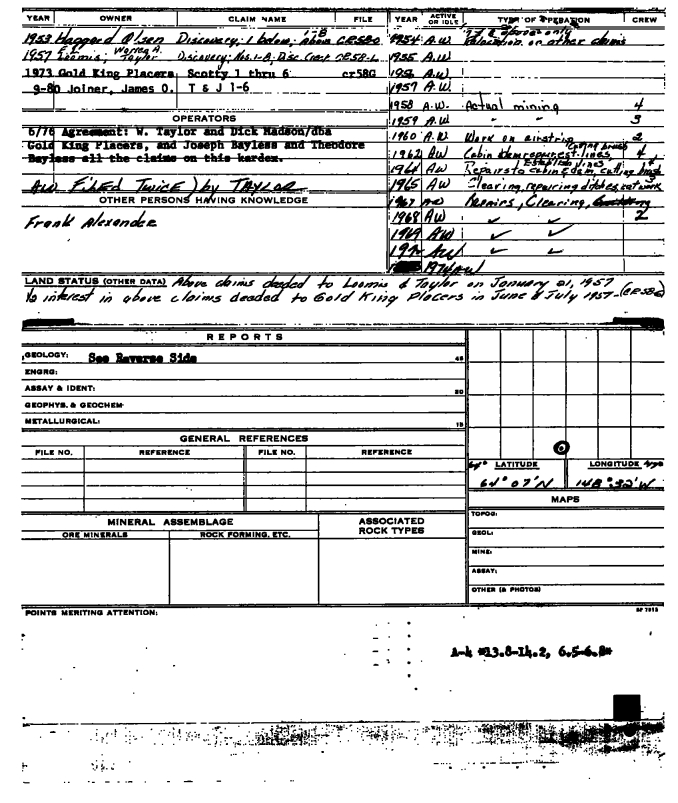 YEAR OWNER CLAIM NAME FILE YEAR ACTIVE OR IDLE TYPE OF OPERATION CREW
1953 Haggard Olsen Discovery; 1 below, above CR58-D 1954 A.W. Relocation on other claims
1957 Loomis; Warren A. Taylor 1955 A.W.
1973 Gold King Placers Scotty 1 thru 6 cr58G 1956 A.W.
1957 A.W.
9-80 Joiner, James O. T & J 1-6 1958 A.W. Actual mining 4
OPERATORS 1959 A.W. 3
6/76 Agreement: W. Taylor and Dick Madson/dba 1960 A.W. Work on airstrip 2
Gold King Placers, and Joseph Bayless and Theodore 1962 AW 4
Bayless all the claims on this kardex. 1964 AW Repairs to cabin & dam, cutting brush
AW FILED TWICE) by TAYLOR 1965 AW Clearing, repairing ditches,
OTHER PERSONS HAVING KNOWLEDGE 1967 Repairs, Clearing,
Frank Alexander 1968 AW ✓ ✓ 2
1969 AW ✓ ✓
AW ✓ ✓
1974 AW
LAND STATUS (OTHER DATA) Above claims deeded to Loomis & Taylor on January 21, 1957
interest in above claims deeded to Gold King Placers in June & July 1957-
REPORTS
GEOLOGY: See Reverse Side 45
ENGRG:
ASSAY & IDENT: 20
GEOPHYS. & GEOCHEM-
METALLURGICAL: 15
GENERAL REFERENCES
FILE NO. REFERENCE FILE NO. REFERENCE
LATITUDE LONGITUDE
64°07'N 148°32'W
MAPS
MINERAL ASSEMBLAGE ASSOCIATED ROCK TYPES TOPOG:
ORE MINERALS ROCK FORMING, ETC. GEOL:
MINE:
ASSAY:
OTHER (& PHOTOS)
POINTS MERITING ATTENTION:
A-4 #13.8-14.2, 6.5-6.8#